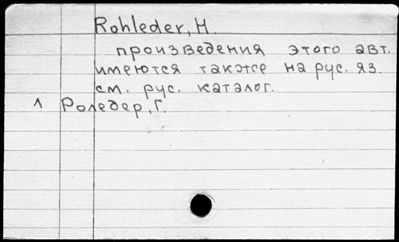 Rohleder, H.
произведения этого авт.
имеются также на рус. яз.
см. рус. каталог.
^ Роледер, Г.